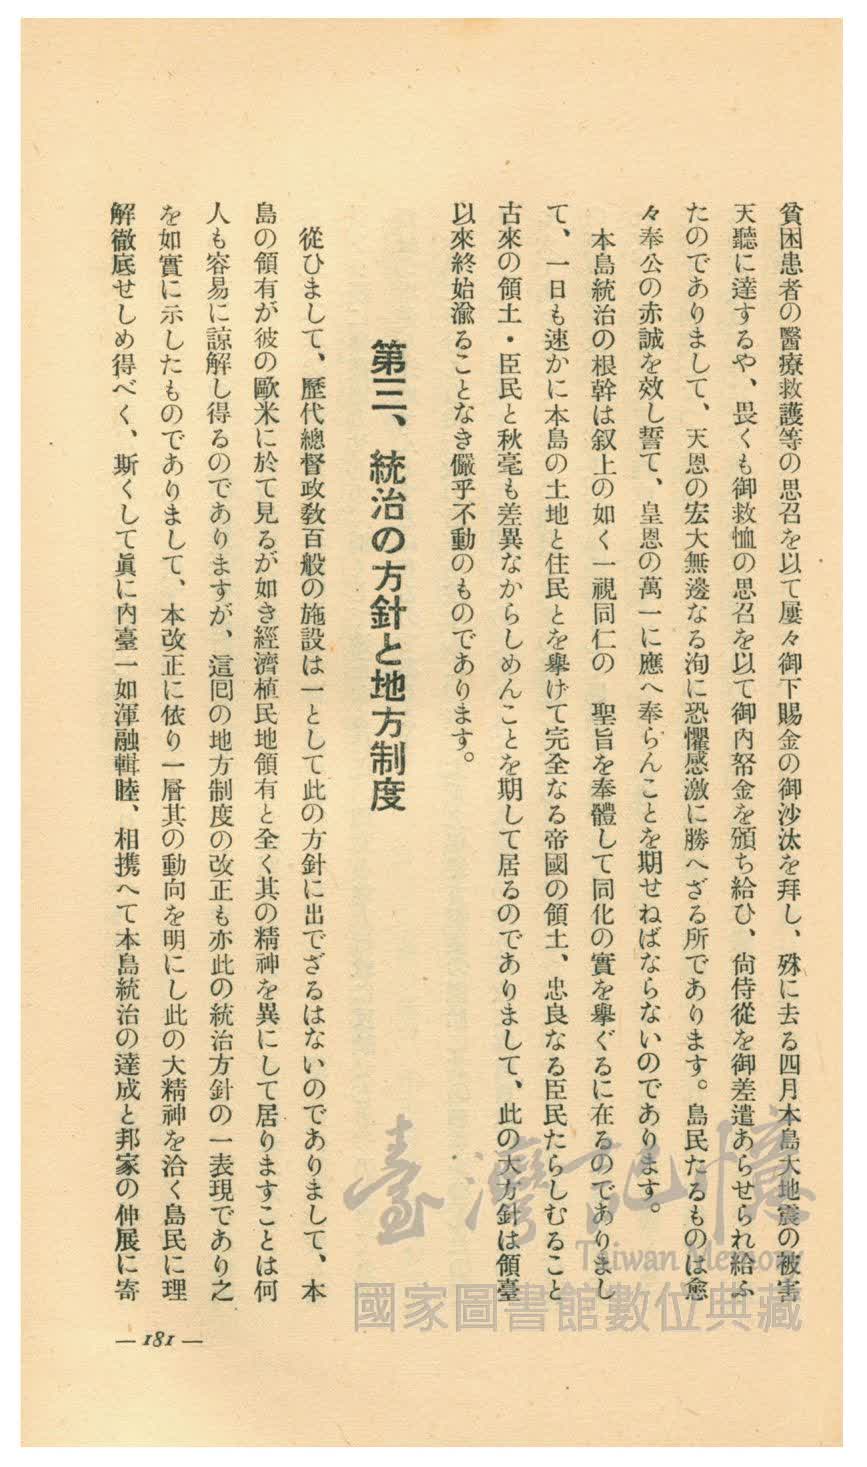 貧困患者の醫療救護等の思召を以て屢々御下賜金の御沙汰を拜し、殊に去る四月本島大地震の被害
天聽に達するや、畏くも御救恤の思召を以て御內帑金を頒ち給ひ、尙侍從を御差遣あらせられ給ふ
たのでありまして、天恩の宏大無邊なる洵に恐懼感激に勝へざる所であります。島民たるものは愈
々奉公の赤誠を效し誓て、皇恩の萬一に應へ奉らんことを期せねばならないのであります。
本島統治の根幹は叙上の如く一視同仁の　聖旨を奉體して同化の實を擧ぐるに在るのでありまし
て、一日も速かに本島の土地と住民とを擧げて完全なる帝國の領土、忠良なる臣民たらしむること
古來の領土・臣民と秋毫も差異なからしめんことを期して居るのでありまして、此の大方針は領臺
以來終始渝ることなき儼乎不動のものであります。
第三、統治の方針と地方制度
從ひまして、歷代總督政敎百般の施設は一として此の方針に出でざるはないのでありまして、本
島の領有が彼の歐米に於て見るが如き經濟植民地領有と全く其の精神を異にして居りますことは何
人も容易に諒解し得るのでありますが、這囘の地方制度の改正も亦此の統治方針の一表現であり之
を如實に示したものでありまして、本改正に依り一層其の動向を明にし此の大精神を洽く島民に理
解徹底せしめ得べく、斯くして眞に內臺一如渾融輯睦、相携へて本島統治の達成と邦家の伸展に寄
— 181 —
臺灣記憶
Taiwan Memory
國家圖書館數位典藏